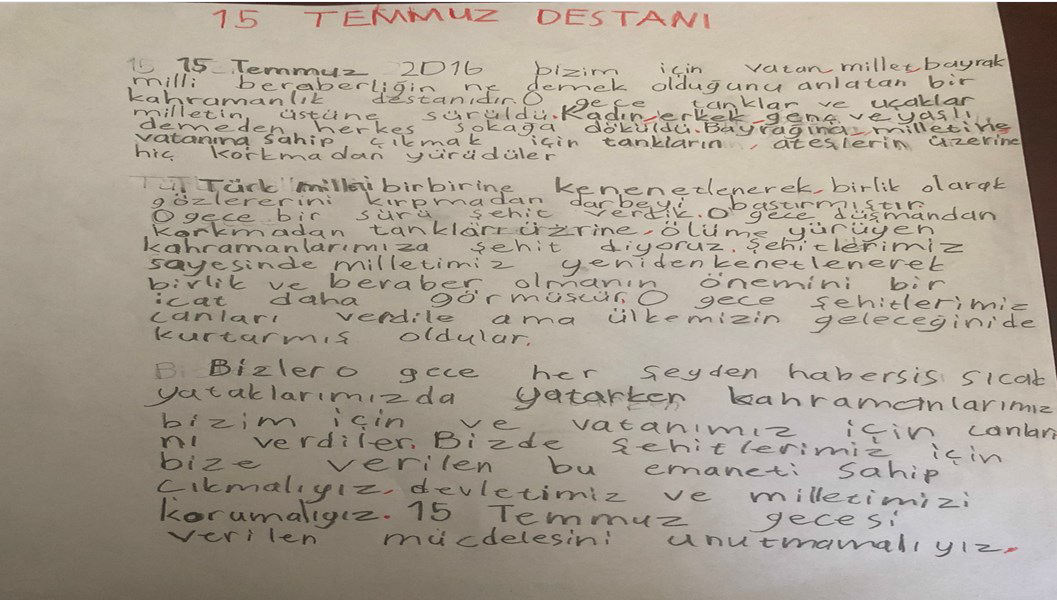 15 TEMMUZ DESTANI
15 Temmuz 2016 bizim için vatan, millet, bayrak
milli beraberliğin ne demek olduğunu anlatan bir
kahramanlık destanıdır. O gece tanklar ve uçaklar
milletin üstüne sürüldü. Kadın, erkek, genç ve yaşlı
demeden herkes sokağa döküldü. Bayrağına, milletine,
vatanına sahip çıkmak için tankların, ateşlerin üzerine
hiç korkmadan yürüdüler
Türk milleti birbirine kenenetlenerek, birlik olarak
gözlererini kırpmadan darbeyi bastırmıştır.
O gece bir sürü şehit verdik. O gece düşmandan
korkmadan tankların üzrine, ölüme yürüyen
kahramanlarımıza şehit diyoruz. Şehitlerimiz
sayesinde milletimiz yeniden kenetlenerek
birlik ve beraber olmanın önemini bir
icat daha görmüştür. O gece şehitlerimiz
canları verdile ama ülkemizin geleceğinide
kurtarmış oldular.
Bizler o gece her şeyden habersis sıcak
yataklarımızda yatarken kahramanlarımız
bizim için ve vatanımız için canları
nı verdiler. Bizde şehitlerimiz için
bize verilen bu emaneti sahip
çıkmalıyız, devletimiz ve milletimizi
korumalıyız. 15 Temmuz gecesi
verilen mücdelesini unutmamalıyız.